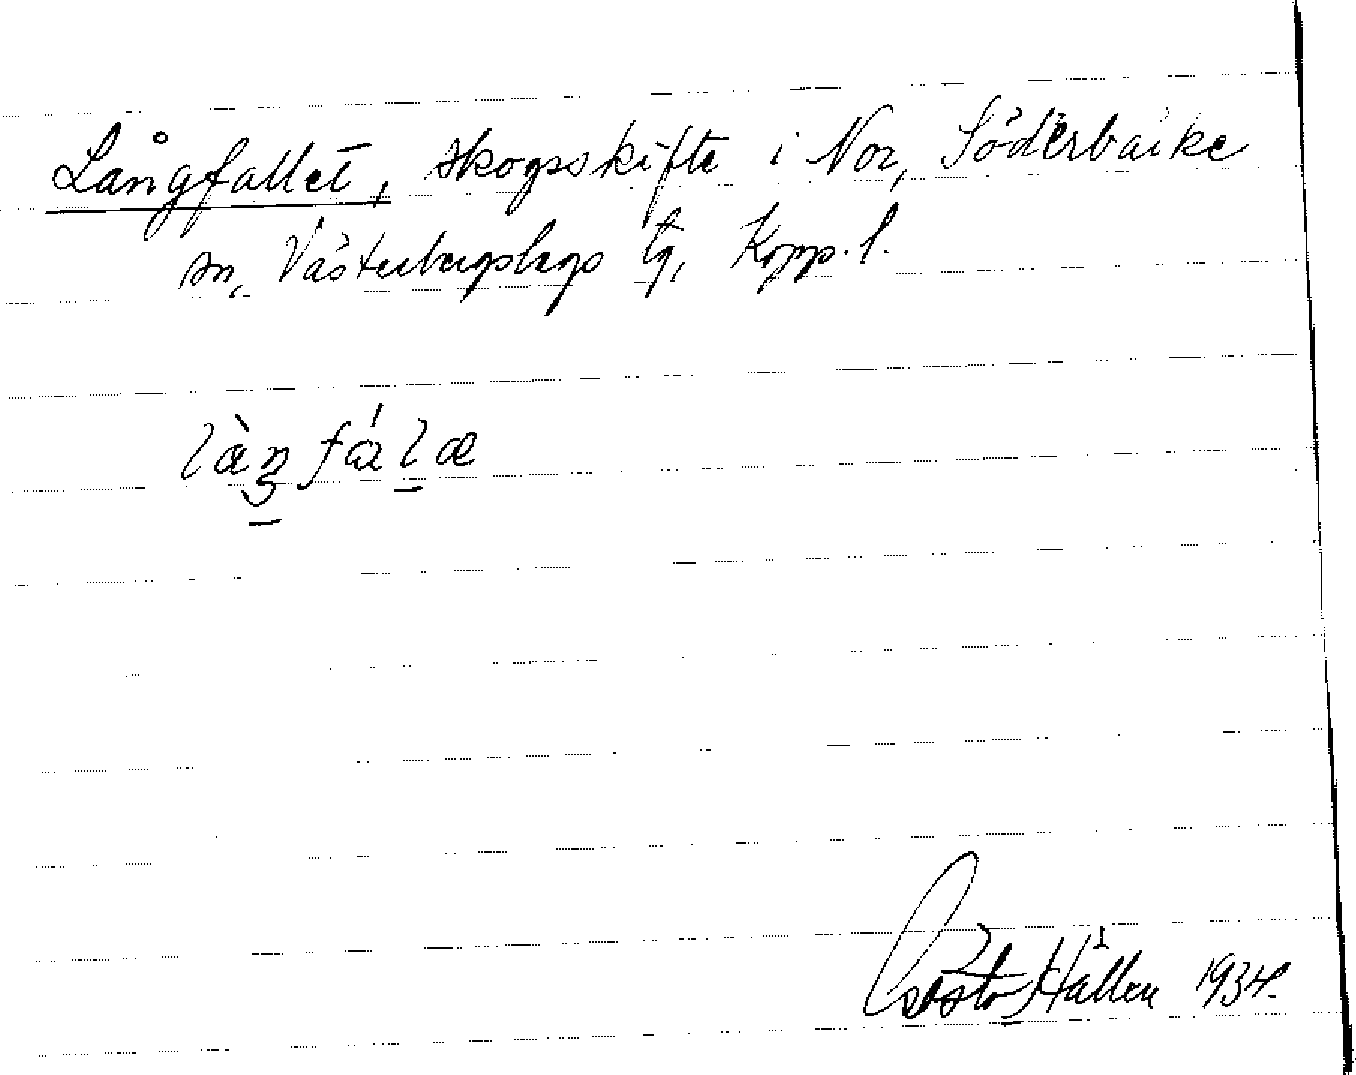 Långfallet, skogsskifte i Nor, Söderbärke
sn, Västerbergslags tg, Kopp. l.
Hällen 1934.